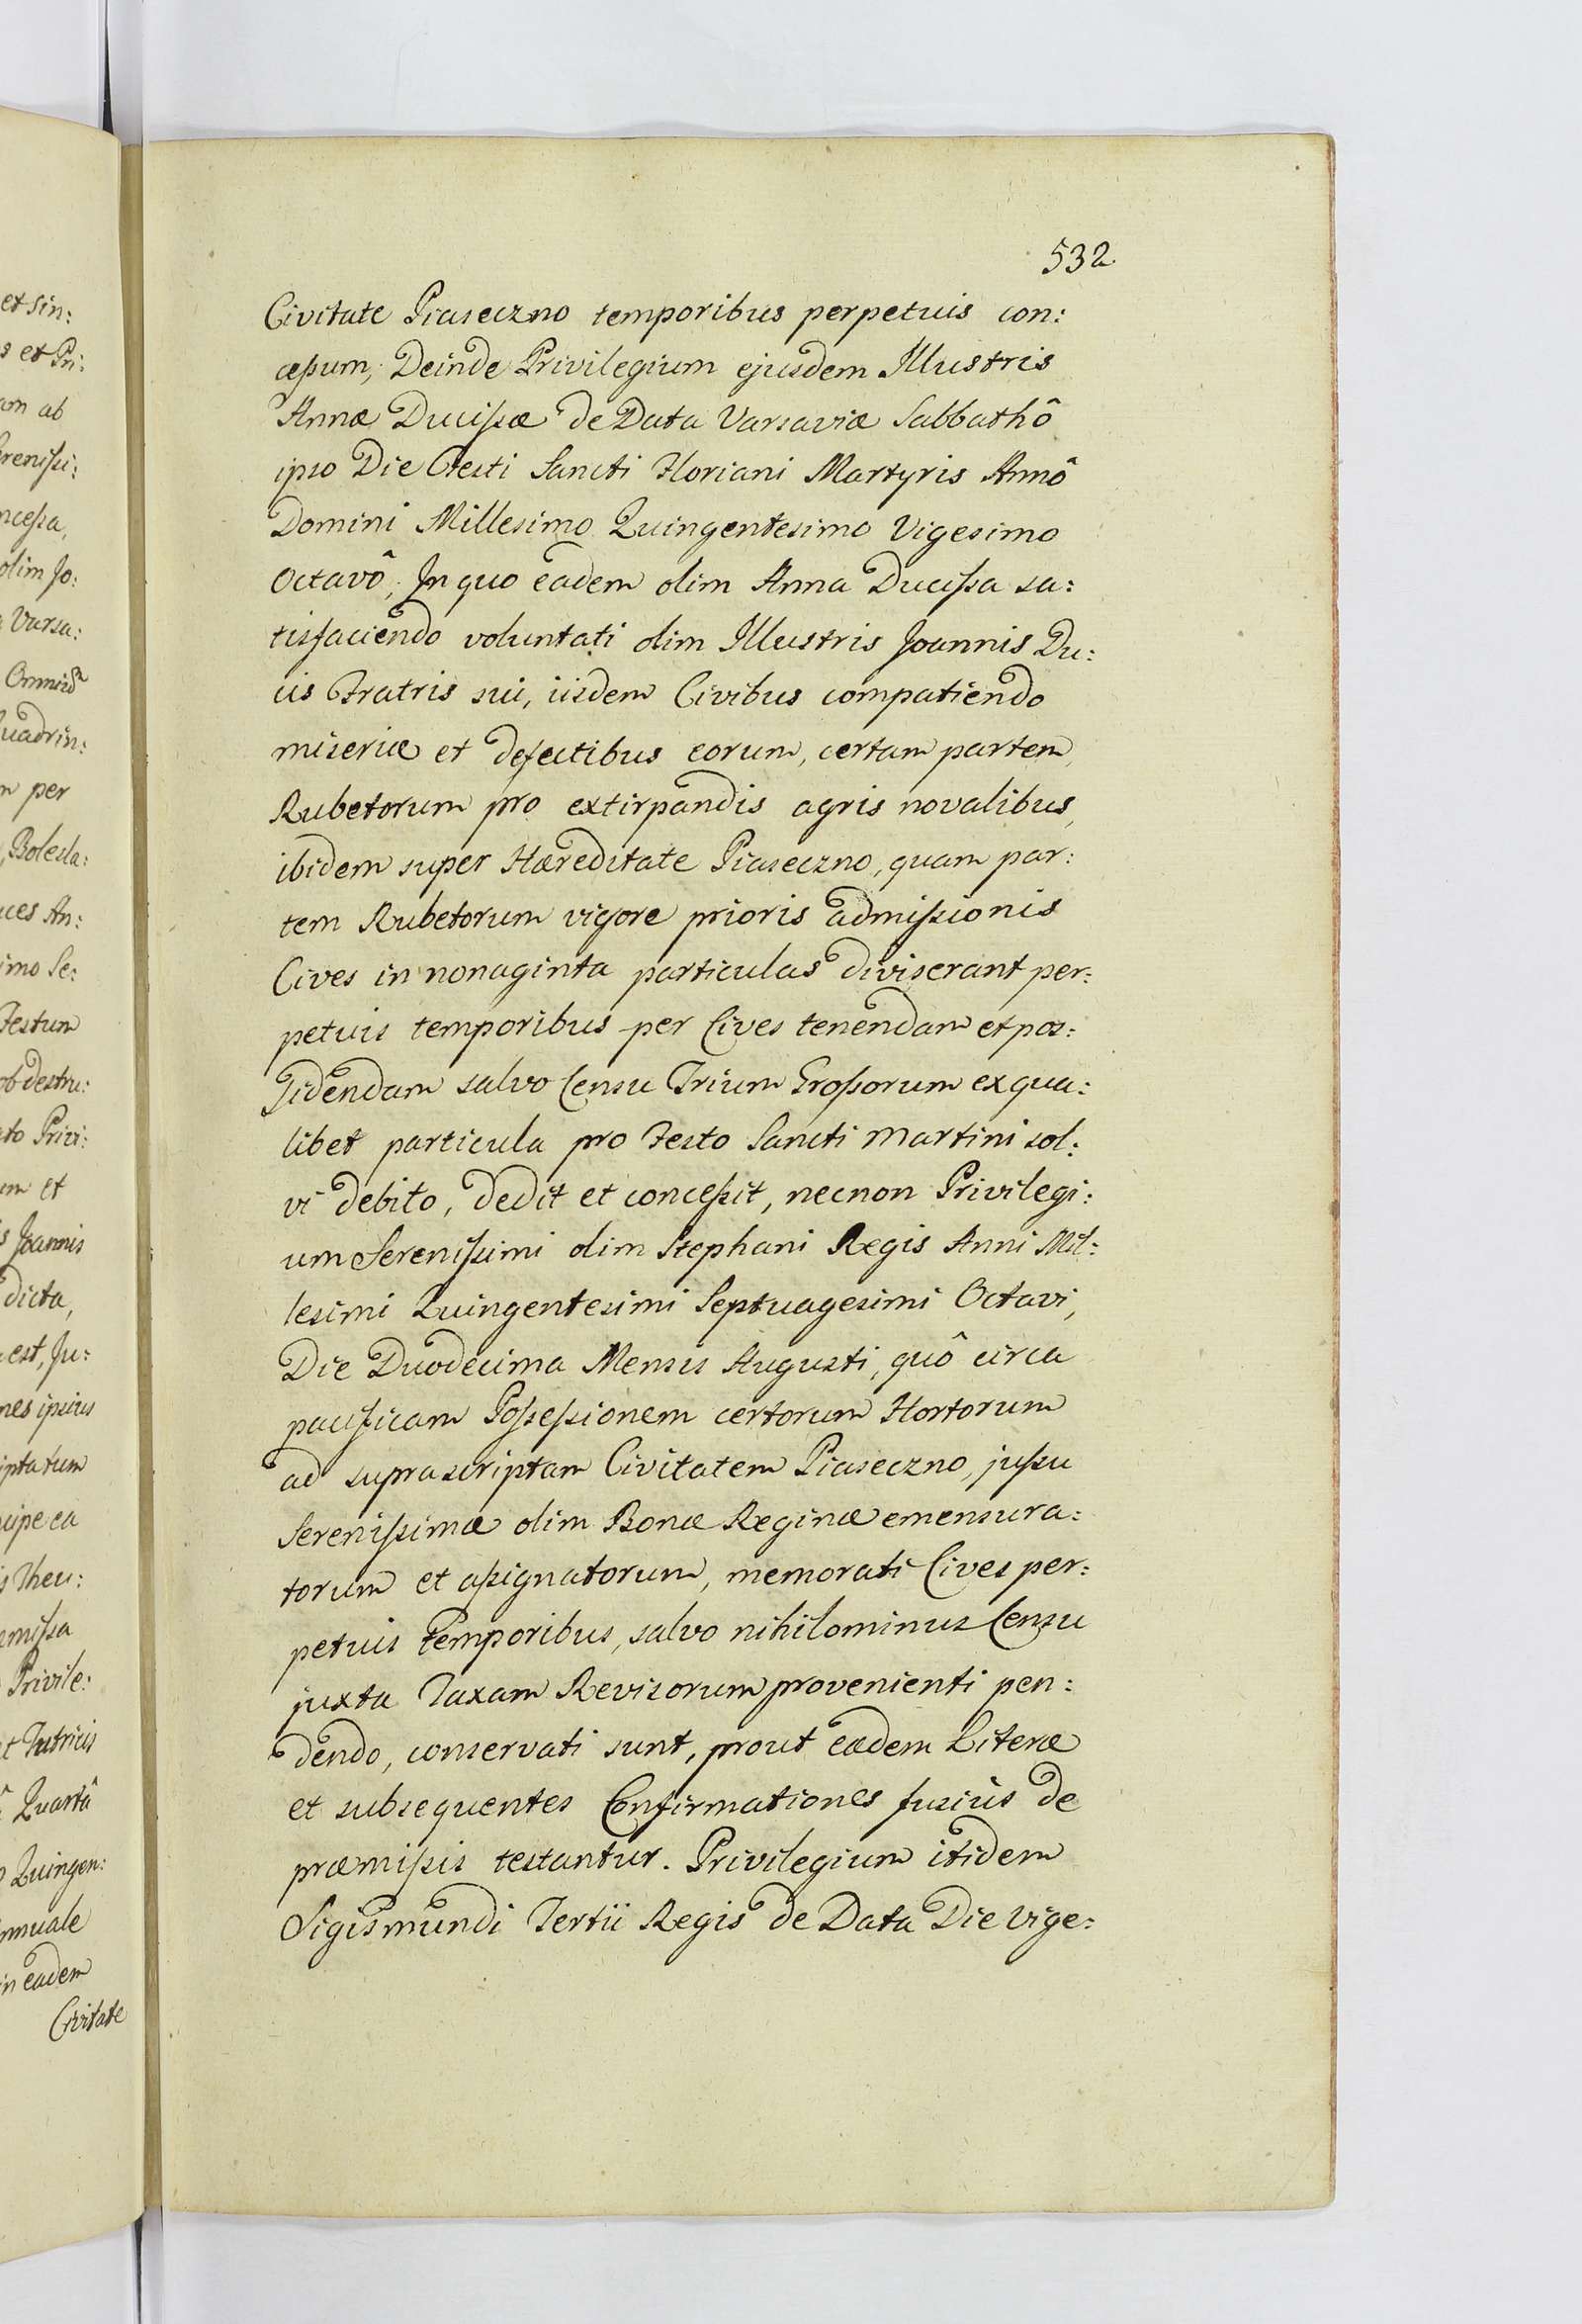 532
Civitate Piaseczno temporibus perpetuis con:
cessum, Deinde Privilegium ejusdem Illustris
Annæ Ducissæ de Data Varsaviæ Sabbathô
ipso Die Festi Sancti Floriani Martyris Annô
Domini Millesimo Quingentesimo Vigesimo
Octavô, In quo eadem olim Anna Ducissa sa:
tisfaciendo voluntati olim Illustris Joannis Du:
cis Fratris sui, iisdem Civibus compatiendo
miseriæ et defectibus eorum, certam partem
Rubetorum pro extirpandis agris novalibus,
ibidem super Hæreditate Piaseczno, quam par:
tem Rubetorum vigore prioris admissionis
Cives in nonaginta particulas diviserant per:
petuis temporibus per Cives tenendam et pos:
sidendam salvo Censu Trium Grossorum ex qua:
libet particula pro Festo Sancti Martini sol:
vi debito, dedit et concessit, necnon Privilegi:
um Serenissimi olim Stephani Regis Anni Mil:
lesimi Quingentesimi Septuagesimi Octavi,
Die Duodecima Mensis Augusti, quô circa
pacificam Possessionem certorum Hortorum
ad suprascriptam Civitatem Piaseczno, jussu
Serenissimæ olim Bonæ Reginæ emensura:
torum et assignatorum, memorati Cives per:
petuis Temporibus, salvo nihilominus Censu
juxta Taxam Revisorum provenienti pen:
dendo, conservati sunt, prout eædem Literæ
et subsequentes Confirmationes fusius de
præmissis testantur. Privilegium itidem
Sigismundi Tertii Regis de Data Die Vige:
et sin:
s et Pri:
am ab
erenissi:
ncessa,
olim Jo:
a Varsa:
uadrin:
m per
, Bolesla:
uces An:
imo Se:
Festum
ob destru:
ato Privi:
um et
s Joannis
dicta,
est, Ju:
nes ipsius
iptatum
cipe ea
s Theu:
emissa
Privile:
et Tutricis
Quartâ
o Quingen:
nnuale
in eadem
Civitate